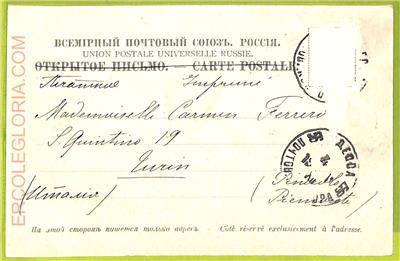 ВСЕМІРНЫЙ ПОЧТОВЫЙ СОЮЗЪ. РОССІЯ.
UNION POSTALE UNIVERSELLE RUSSIE.
ОТКРЫТОЕ ПИСЬМО. — CARTE POSTALE
Печатное Imprimé
Mademoiselle Carmen Ferrero
S. Quintino 19
Turin
(Италія)
Piemonte)
ОДЕССА
ПОЧТОВ
На этой сторонѣ пишется только адресъ. - Côté réservé exclusivement à l'adresse.
ERCOLEGLORIA.COM